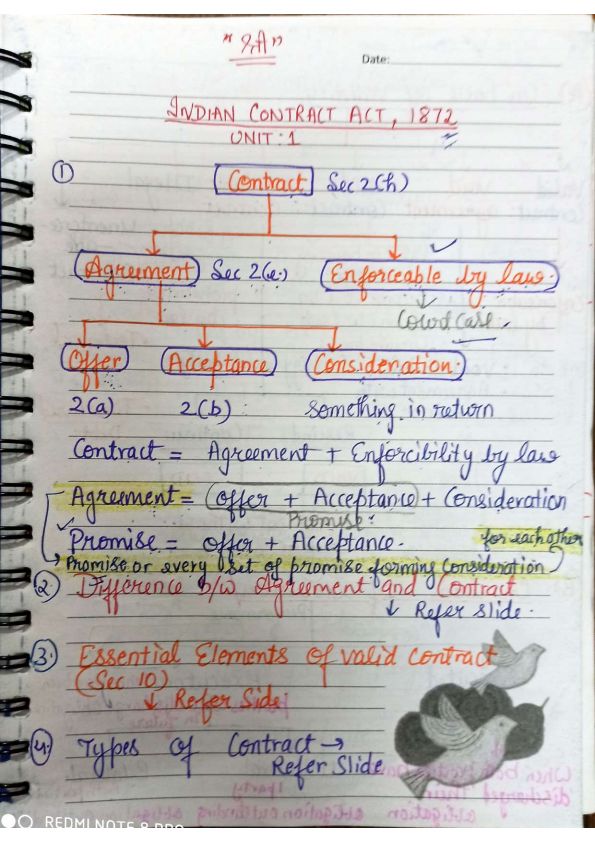 Date:
INDIAN CONTRACT ACT, 1872
UNIT: 1
① Contract Sec 2(h)
Agreement Sec 2(e) Enforceable by law
Offer Acceptance Consideration
2(a) 2(b) Something in return
Contract = Agreement + Enforcibility by law
Agreement = (Offer + Acceptance) + Consideration
Promise
Promise = Offer + Acceptance. for each other
Promise or every set of promise forming consideration
2. Difference b/w Agreement and Contract
↓ Refer slide.
3. Essential Elements of valid contract
(Sec 10)
↓ Refer Side
4. Types Of Contract →
Refer Slide
REDMI NOTE 8 PRO